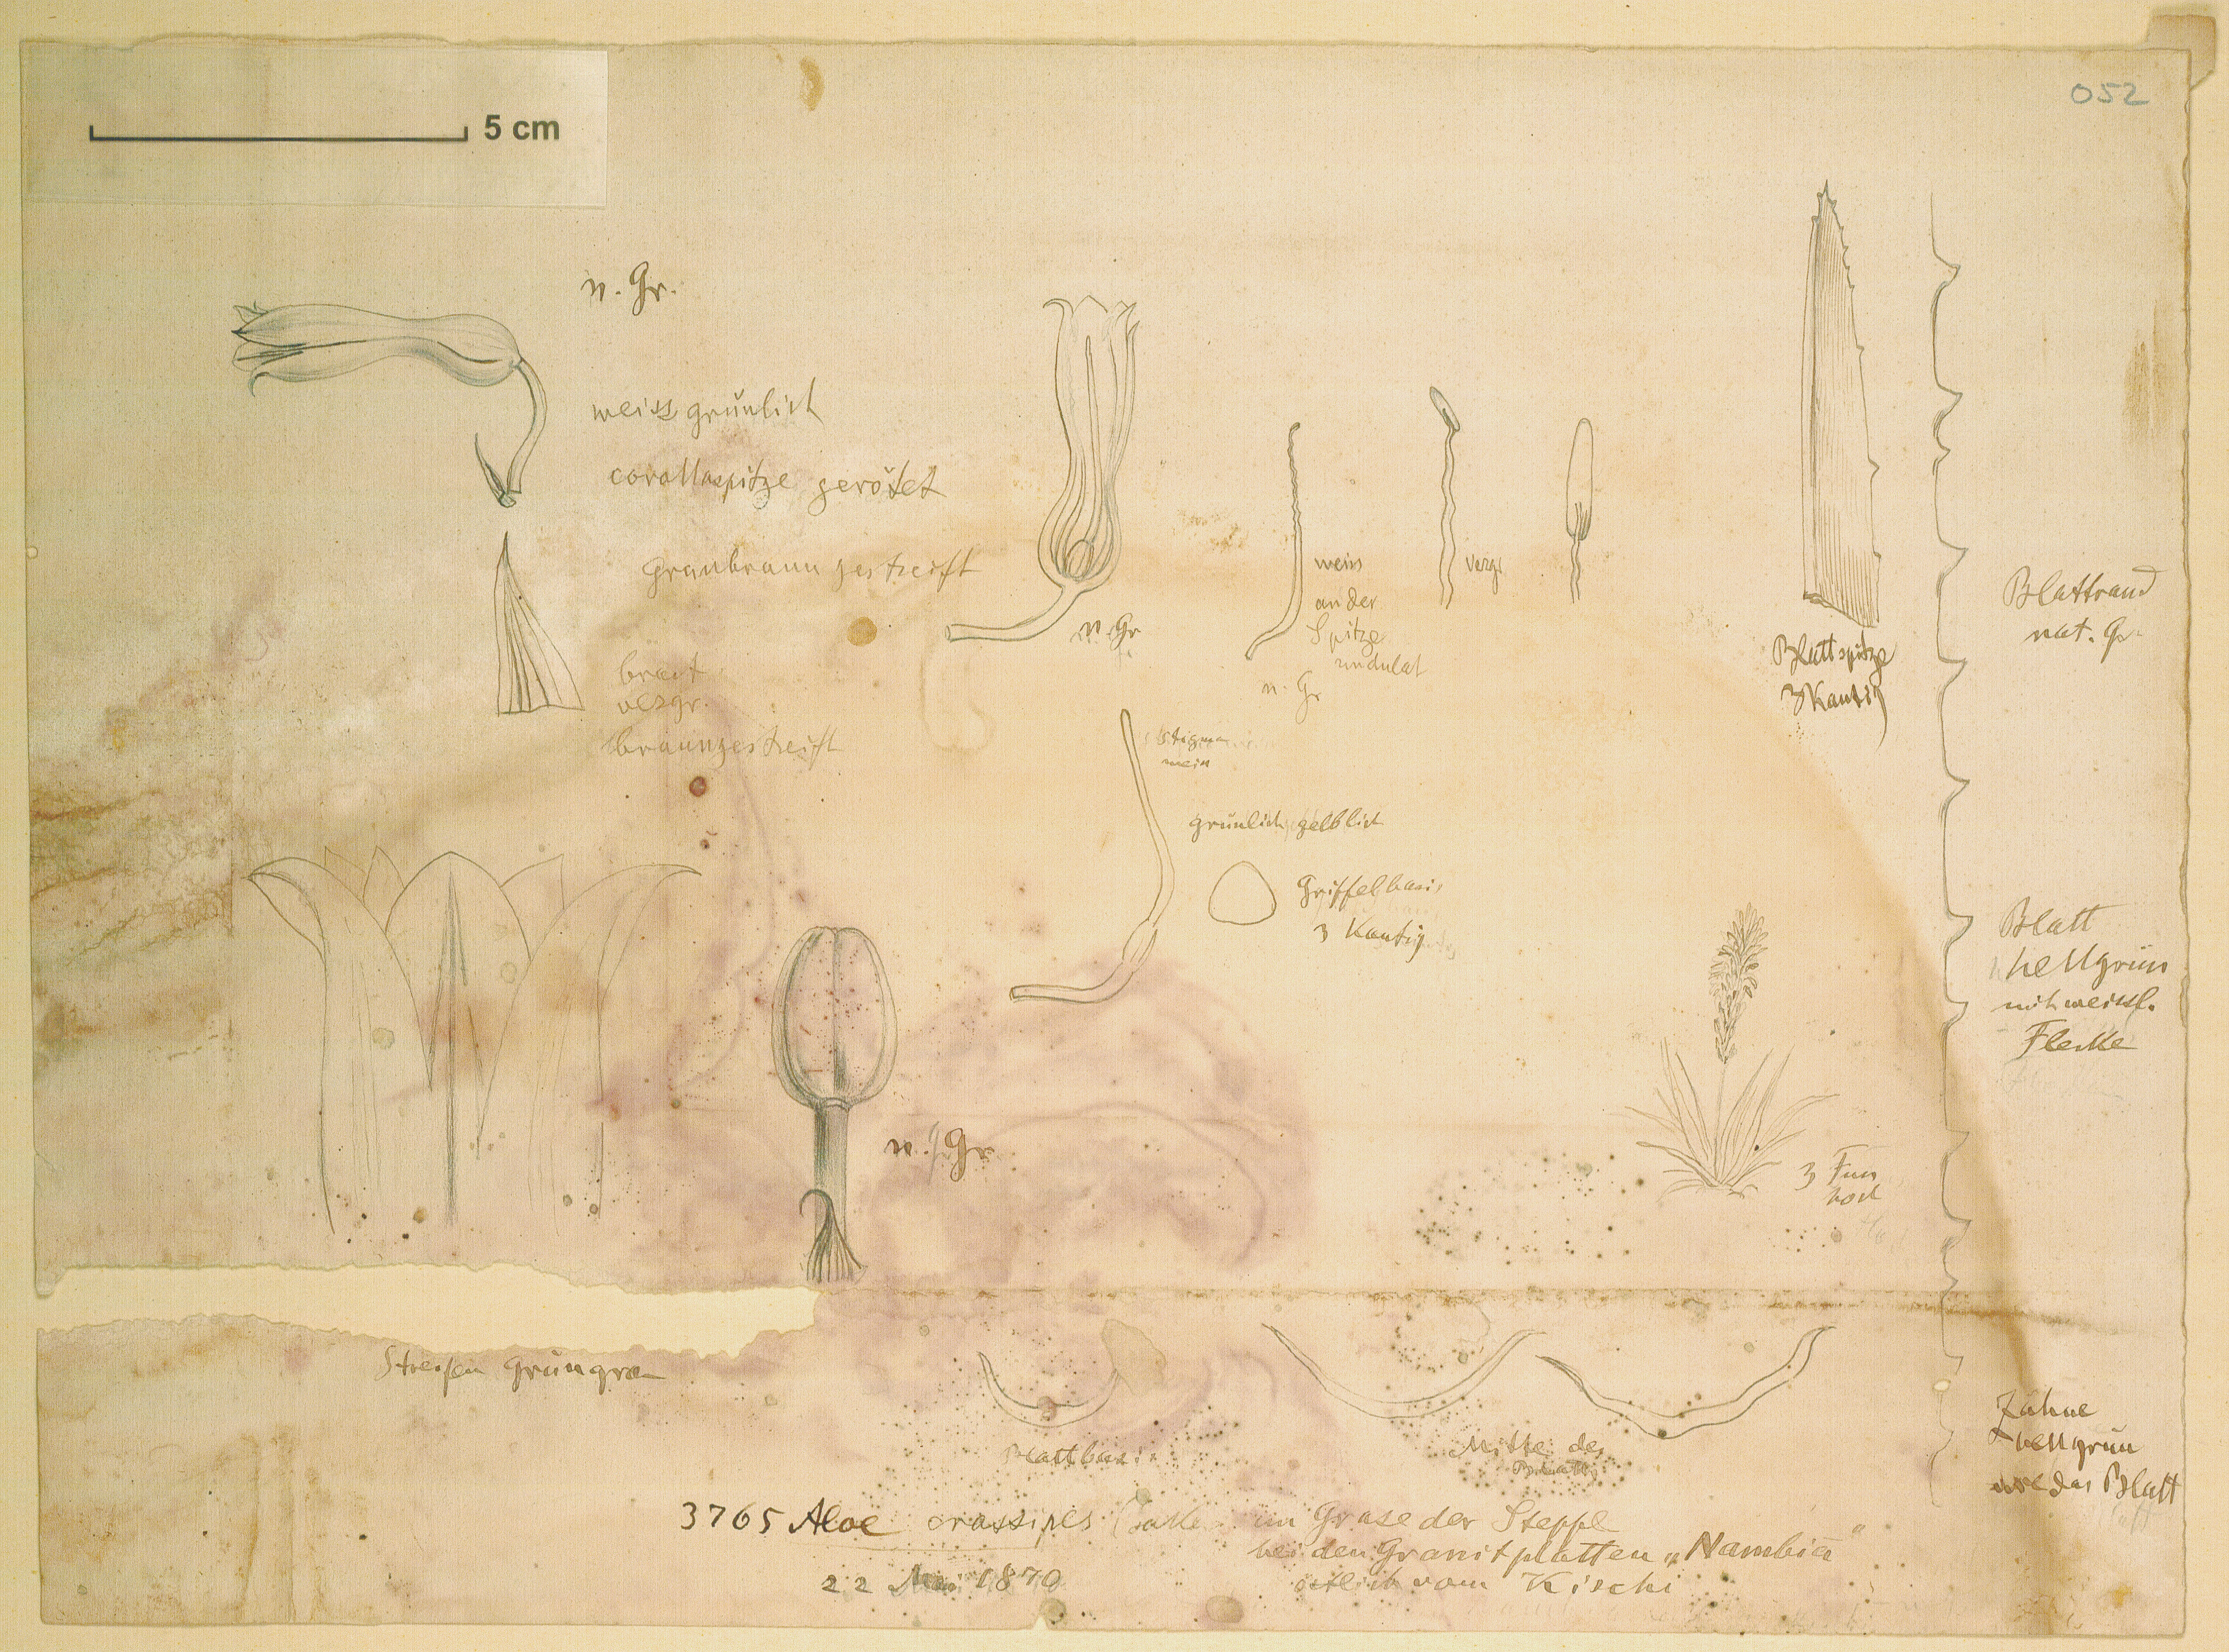 5 cm
052
n. Gr.
weiss grünlich
corollaspitze gerötet
graubraun gestreift
bract
vergr.
braungestreift
n. Gr
weiss
an der
Spitze
undulat
n. Gr
vergr
Blattspitze
3 Kantig
Blattrand
nat. Gr.
Stigma
weiss
grünlich gelblich
Griffelbasis
3 Kantig
Blatt
hellgrün
mit weissl.
Flecke
n. Gr
3 Fuss
hoch
Streifen grüngrau
Blattbasis
Mitte des
Blatts
Zähne
hellgrün
wie das Blatt
3765 Aloe crassipes Baker im Grase der Steppe
bei den Granitplatten „Nambia"
22 Mai 1870
östlich vom Kischi